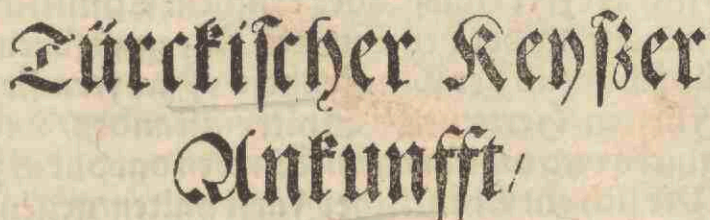 Türckischer Keyßer
Ankunfft/